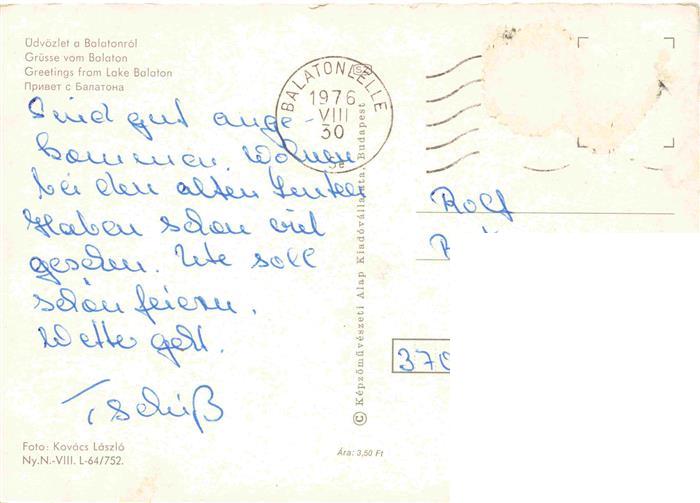 Üdvözlet a Balatonról
Grüsse vom Balaton
Greetings from Lake Balaton
Привет с Балатона
Sind gut ange-
kommen. Wohnen
bei den alten Leuten
Haben schon viel
gesehen. Ute soll
schön feiern.
Wetter geht.
Tschüß
Foto: Kovács László
Ny.N.-VIII. L-64/752.
BALATONLELLE
1976
VIII
30
© Képzőművészeti Alap Kiadóvállalata, Budapest
Ára: 3,50 Ft
Rolf
370